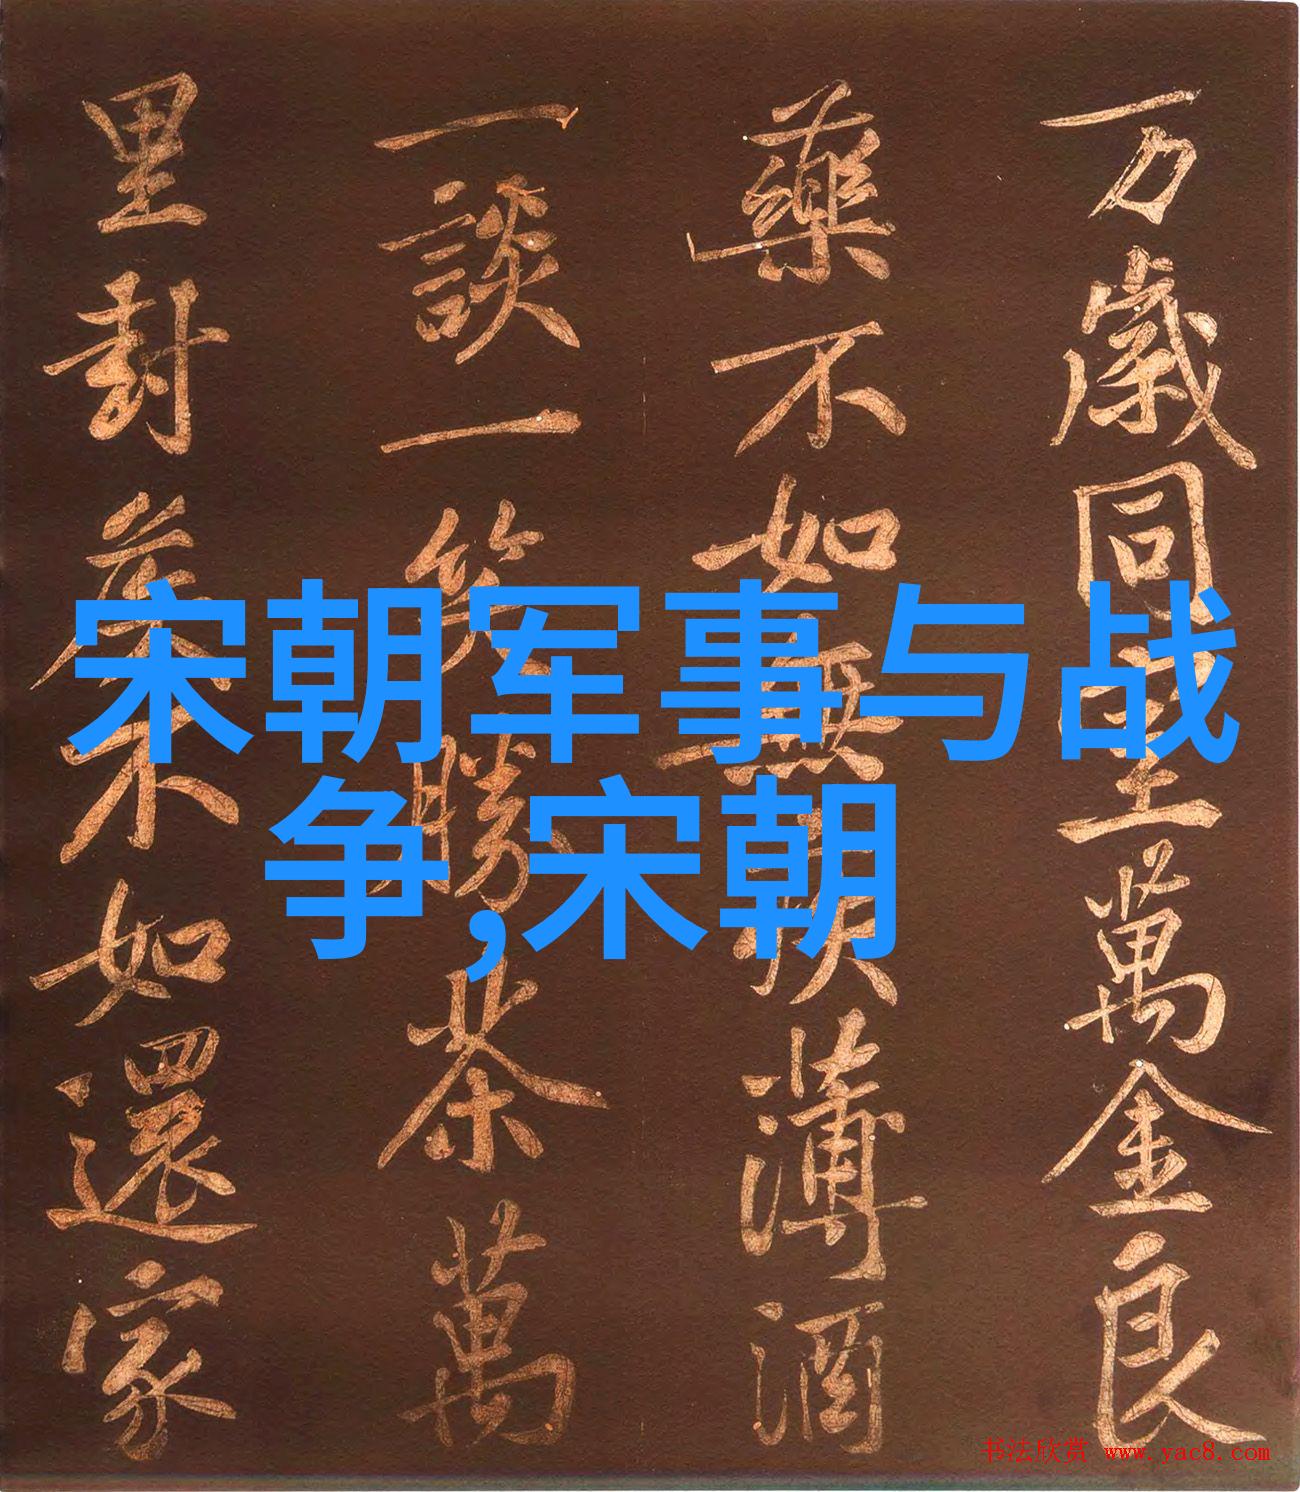 万歲同萬金良
藥不如無薄酒
一談一笑勝茶萬
里封侯不如還家
宋朝军事与战
争,宋朝
书法欣赏 www.yac8.com